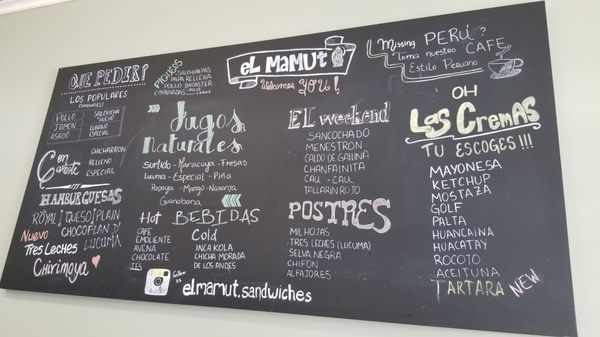 QUE PEDIR?
LOS POPULARES
(SANDWICHES)
POLLO
JAMON
ASADO
SALCHICHA
HUEVO
CUBANO
ESPECIAL
Con
CHICHARRON
RELLENO
ESPECIAL
HAMBURGUESAS
ROYAL | QUESO | PLAIN
Nuevo
CHOCOFLAN D'
LUCUMA
TRES LECHES
Chirimoya
PIQUEOS
SALCHIPAPAS
PAPA RELLENA
POLLO BROASTER
EMPANADAS
EL MAMUT
Welcomes YOU!
Jugos
Naturales
Surtido - Maracuya - Fresas
Lucuma - Especial - Piña
Papaya - Mango - Naranja
Guanabana
Hot BEBIDAS
CAFE
EMOLIENTE
AVENA
CHOCOLATE
TES
Cold
INCA KOLA
CHICHA MORADA
DE LOS ANDES
follow
us
el.mamut.sandwiches
EL weekend
SANCOCHADO
MENESTRON
CALDO DE GALLINA
CHANFAINITA
CAU - CAU
TALLARIN ROJO
POSTRES
MIL HOJAS
TRES LECHES (LUCUMA)
SELVA NEGRA
CHIFON
ALFAJORES
Missing PERU?
Toma nuestro CAFE
Estilo Peruano
OH
Las CremAs
TU ESCOGES!!!
MAYONESA
KETCHUP
MOSTAZA
GOLF
PALTA
HUANCAINA
HUACATAY
ROCOTO
ACEITUNA
TARTARA NEW